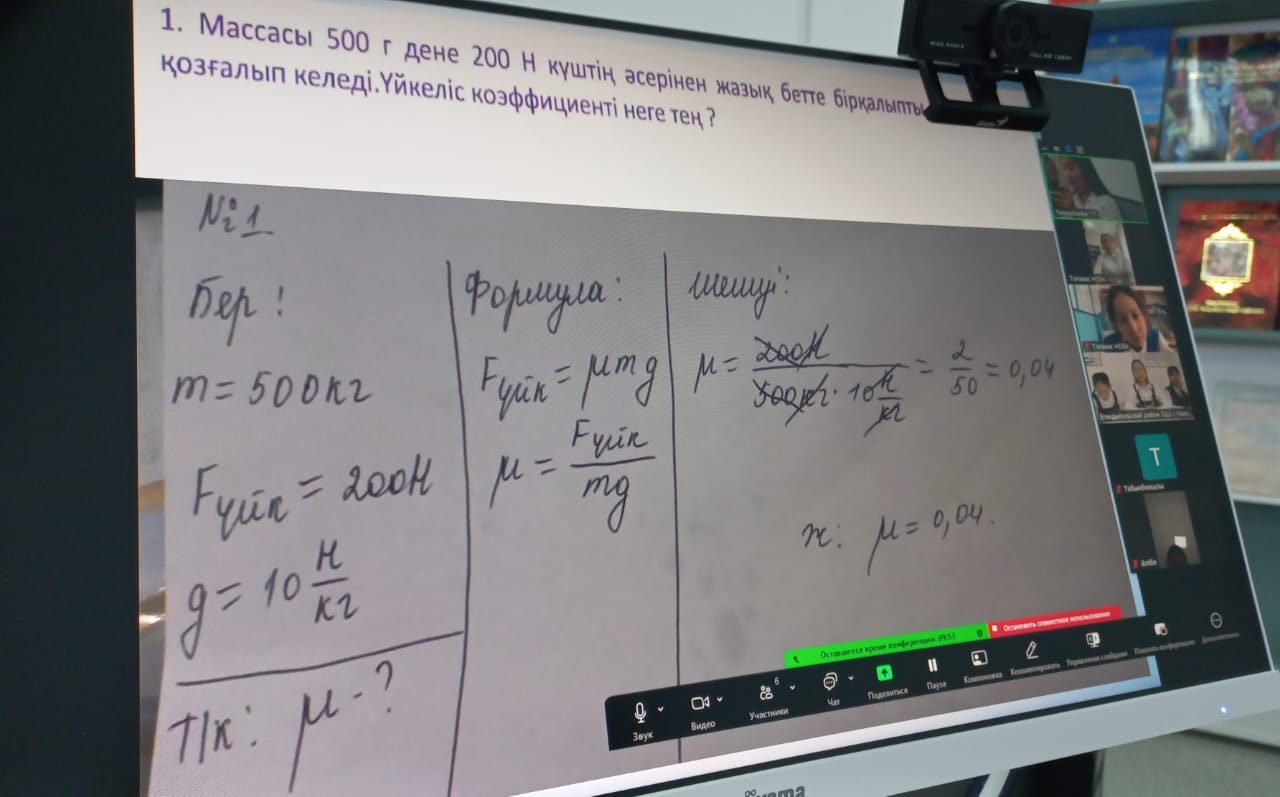 1. Массасы 500 г дене 200 Н күштің әсерінен жазық бетте бірқалыпты
қозғалып келеді.Үйкеліс коэффициенті неге тең ?
№1
Бер !
m = 500кг
Fүйк = 200Н
g = 10 Н/кг
Т/к: μ - ?
Формула:
Fүйк = μmg
μ = Fүйк/mg
шешуі:
μ = 200Н/500кг · 10 Н/кг = 2/50 = 0,04
ж: μ = 0,04.
Т
Оставшееся время конференции: 09:53
Остановить совместное использование
Звук
Видео
6
Участники
Чат
Поделиться
Пауза
Компоновка
Комментировать
Управление слайдами
Показать конференцию
Дополнительно
FULL HD 1080P